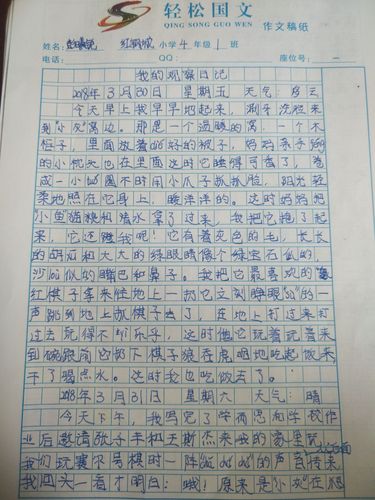 轻松国文
QING SONG GUO WEN
作文稿纸
姓名: 小学 4 年级 1 班
电话: QQ: 座位号:
我的观察日记
2018年3月30日 星期五 天气:多云
今天早上我早早地起来,刷牙洗脸来
到"小灰"窝边。那是一个温暖的窝,一个木
柜子,里面放着 好的被子,妈妈亲手
的小枕头也在里面这时它睡得可香了,卷
成一小 圈不时用小爪子抓抓脸,阳光轻
柔地照在它身上,暖洋洋的。这时妈妈把
小鱼猫粮和清水拿了过来,我把它抱了起
来,它还瞪我呢!它有着灰色的毛,长长
的胡子和大大的绿眼睛像个绿宝石 的,
沙 似的嘴巴和鼻子。我把它最喜欢的
红棋子拿来往地上一扔它立刻睁眼" "的一
声跳到地上 去了,在地上打过来打
过去玩得不亦乐乎,这时 它玩着玩着来
到碗跟前它扔下棋子狼吞虎咽地吃起饭来,
干了喝点水。这时我也吃饭去了。
2018年3月31日 星期六 天气:晴
今天下午,我写完了学而思和学校作
业后邀请张子丰和王斯杰来我的 里玩,
我们玩 棋时一阵" "的声音传来
我回头一看才明白:哦!原来是小灰在